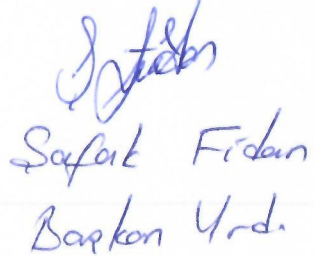 Şafak Fidan
Başkan Yrd.